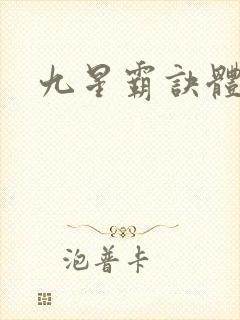 九星霸訣體
泡普卡